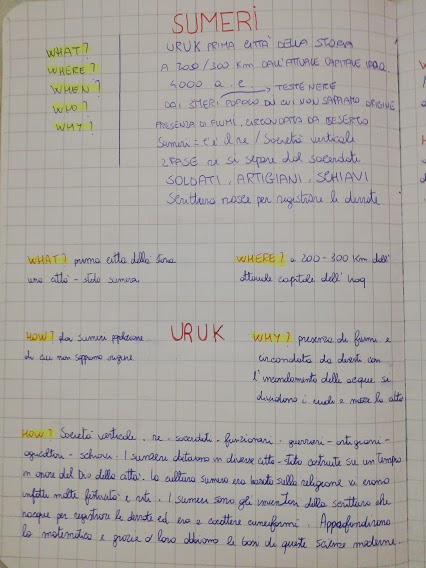 SUMERI
WHAT? URUK PRIMA CITTÀ DELLA STORIA
WHERE? A 200/300 Km DALL'ATTUALE CAPITALE IRAQ.
WHEN? 4000 a.c. TESTE NERE
WHO? DAI SUMERI POPOLO DI CUI NON SAPPIAMO ORIGINE
WHY? PRESENZA DI FIUMI, CIRCONDATA DA DESERTO
Sumeri = c'è il re / Società verticale
2 FASE re si separa dal sacerdote
SOLDATI, ARTIGIANI, SCHIAVI
Scrittura nasce per registrare le derrate
WHAT? prima città della storia
una città - stato sumera
WHERE? a 200-300 Km dall'
attuale capitale dell'Iraq
HOW? dai sumeri popolazione
di cui non sappiamo origine
URUK
WHY? presenza di fiumi e
circondata da deserti con
l'innondamento delle acque si
dividono i ruoli e nasce la città
HOW? Società verticale. re. sacerdoti. funzionari. guerrieri - artigiani -
agricoltori - schiavi. I sumeri abitavano in diverse città-stato costruite su un tempio
in onore del Dio della città. La cultura sumera era basata sulla religione vi erano
infatti molte festività e riti. I sumeri sono gli inventori della scrittura che
nacque per registrare le derrate ed era a carattere cuneiforme. Approfondirono
la matematica e grazie a loro abbiamo le basi di queste scienze moderne.